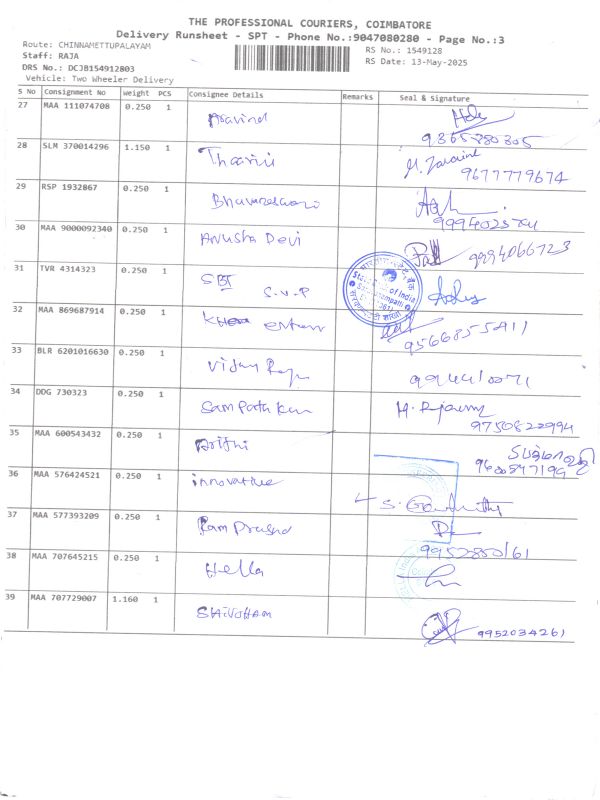 THE PROFESSIONAL COURIERS, COIMBATORE
Delivery Runsheet - SPT - Phone No.:9047080280 - Page No.:3
Route: CHINNAMETTUPALAYAM RS No.: 1549128
Staff: RAJA RS Date: 13-May-2025
DRS No.: DCJB154912803
Vehicle: Two Wheeler Delivery
S No Consignment No Weight PCS Consignee Details Remarks Seal & Signature
27 MAA 111074708 0.250 1 Aravind
9365380305
28 SLM 370014296 1.150 1 Thaarini
9677779674
29 RSP 1932867 0.250 1 Bhuvaneswari
30 MAA 9000092340 0.250 1 Anusha Devi 9994066723
31 TVR 4314323 0.250 1 SBI
S.V.P
State Bank of India
32 MAA 869687914 0.250 1
9566855411
33 BLR 6201016630 0.250 1 Vijay 9944410071
34 DDG 730323 0.250 1 Sampath
9750822994
35 MAA 600543432 0.250 1
9600847199
36 MAA 576424521 0.250 1 innovative
37 MAA 577393209 0.250 1 Ram Prasad
9952850161
38 MAA 707645215 0.250 1 Hella
39 MAA 707729007 1.160 1
9952034261